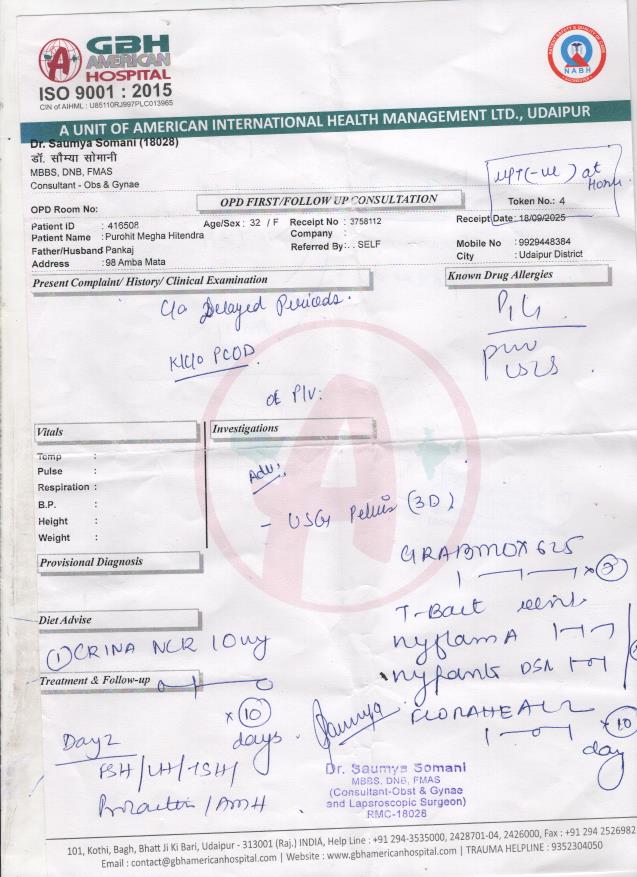 GBH
AMERICAN
HOSPITAL
ISO 9001 : 2015
CIN of AIHML : U85110RJ997PLC013965
NABH
A UNIT OF AMERICAN INTERNATIONAL HEALTH MANAGEMENT LTD., UDAIPUR
Dr. Saumya Somani (18028)
डॉ. सौम्या सोमानी
MBBS, DNB, FMAS
Consultant - Obs & Gynae
UPT (-ve) at Home
OPD FIRST/FOLLOW UP CONSULTATION
OPD Room No:
Token No.: 4
Patient ID : 416508 Age/Sex : 32 / F Receipt No : 3758112 Receipt Date: 18/09/2025
Patient Name : Purohit Megha Hitendra Company :
Father/Husband Pankaj Referred By: . SELF Mobile No : 9929448384
Address : 98 Amba Mata City : Udaipur District
Present Complaint/ History/ Clinical Examination Known Drug Allergies
C/o Delayed Periods.
P1L1
K/C/o PCOD
prev
LSCS
OE P/V:
Vitals Investigations
Temp :
Pulse :
Respiration :
B.P. :
Height :
Weight :
Adv:
- USG Pelvis (3D)
Provisional Diagnosis
GRABMOX 625
T-Bact
Diet Advise
nyflam A
① CRINA NCR 10mg
DSR
Treatment & Follow-up
x 10 days.
FLORAHEAL
x 10 day
Day 2
FSH/LH/TSH/
Prolactin/AMH
Saumya
Dr. Saumya Somani
MBBS, DNB, FMAS
(Consultant-Obst & Gynae
and Laparoscopic Surgeon)
RMC-18028
101, Kothi, Bagh, Bhatt Ji Ki Bari, Udaipur - 313001 (Raj.) INDIA, Help Line : +91 294-3535000, 2428701-04, 2426000, Fax : +91 294 2526982
Email : contact@gbhamericanhospital.com | Website : www.gbhamericanhospital.com | TRAUMA HELPLINE : 9352304050